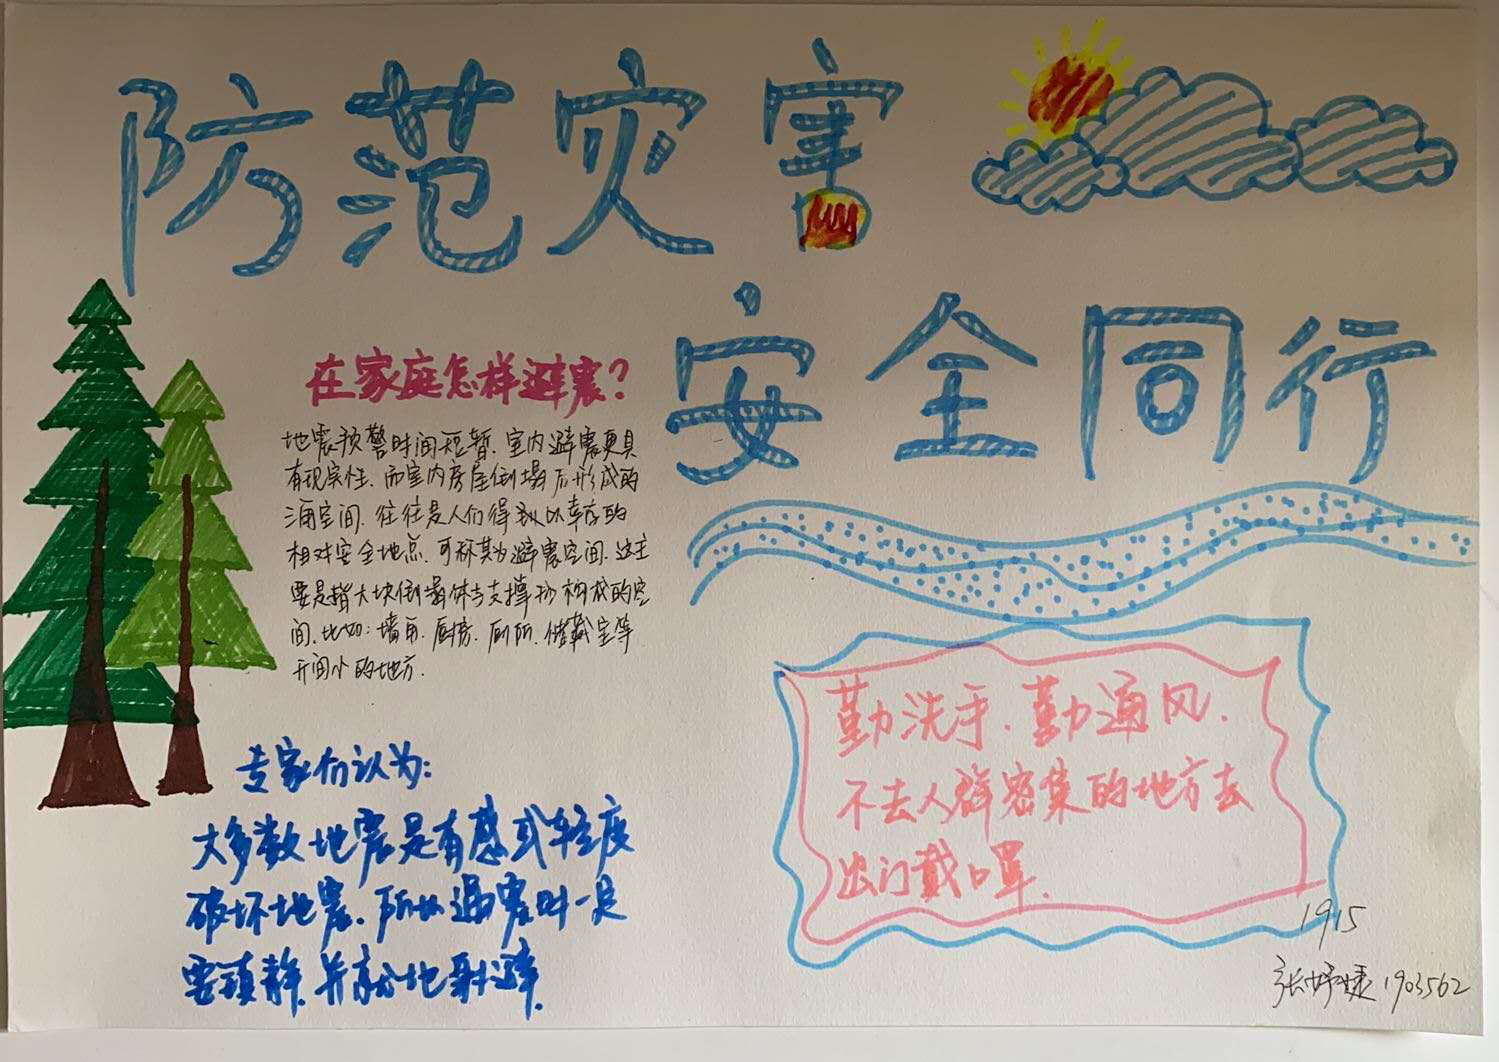 防范灾害
安全同行
在家庭怎样避震?
地震预警时间短暂.室内避震更具
有现实性.而室内房屋倒塌后形成的
三角空间.往往是人们得到以幸存的
相对安全地点.可称其为避震空间.这主
要是指大块倒塌体与支撑物构成的空
间.比如:墙角.厨房.厕所.储藏室等
开间小的地方.
专家们认为:
大多数地震是有感或轻度
破坏地震.所以遇震时一是
要镇静.并就地躲避.
勤洗手.勤通风.
不去人群密集的地方去
出门戴口罩.
1915
张婷 1903562